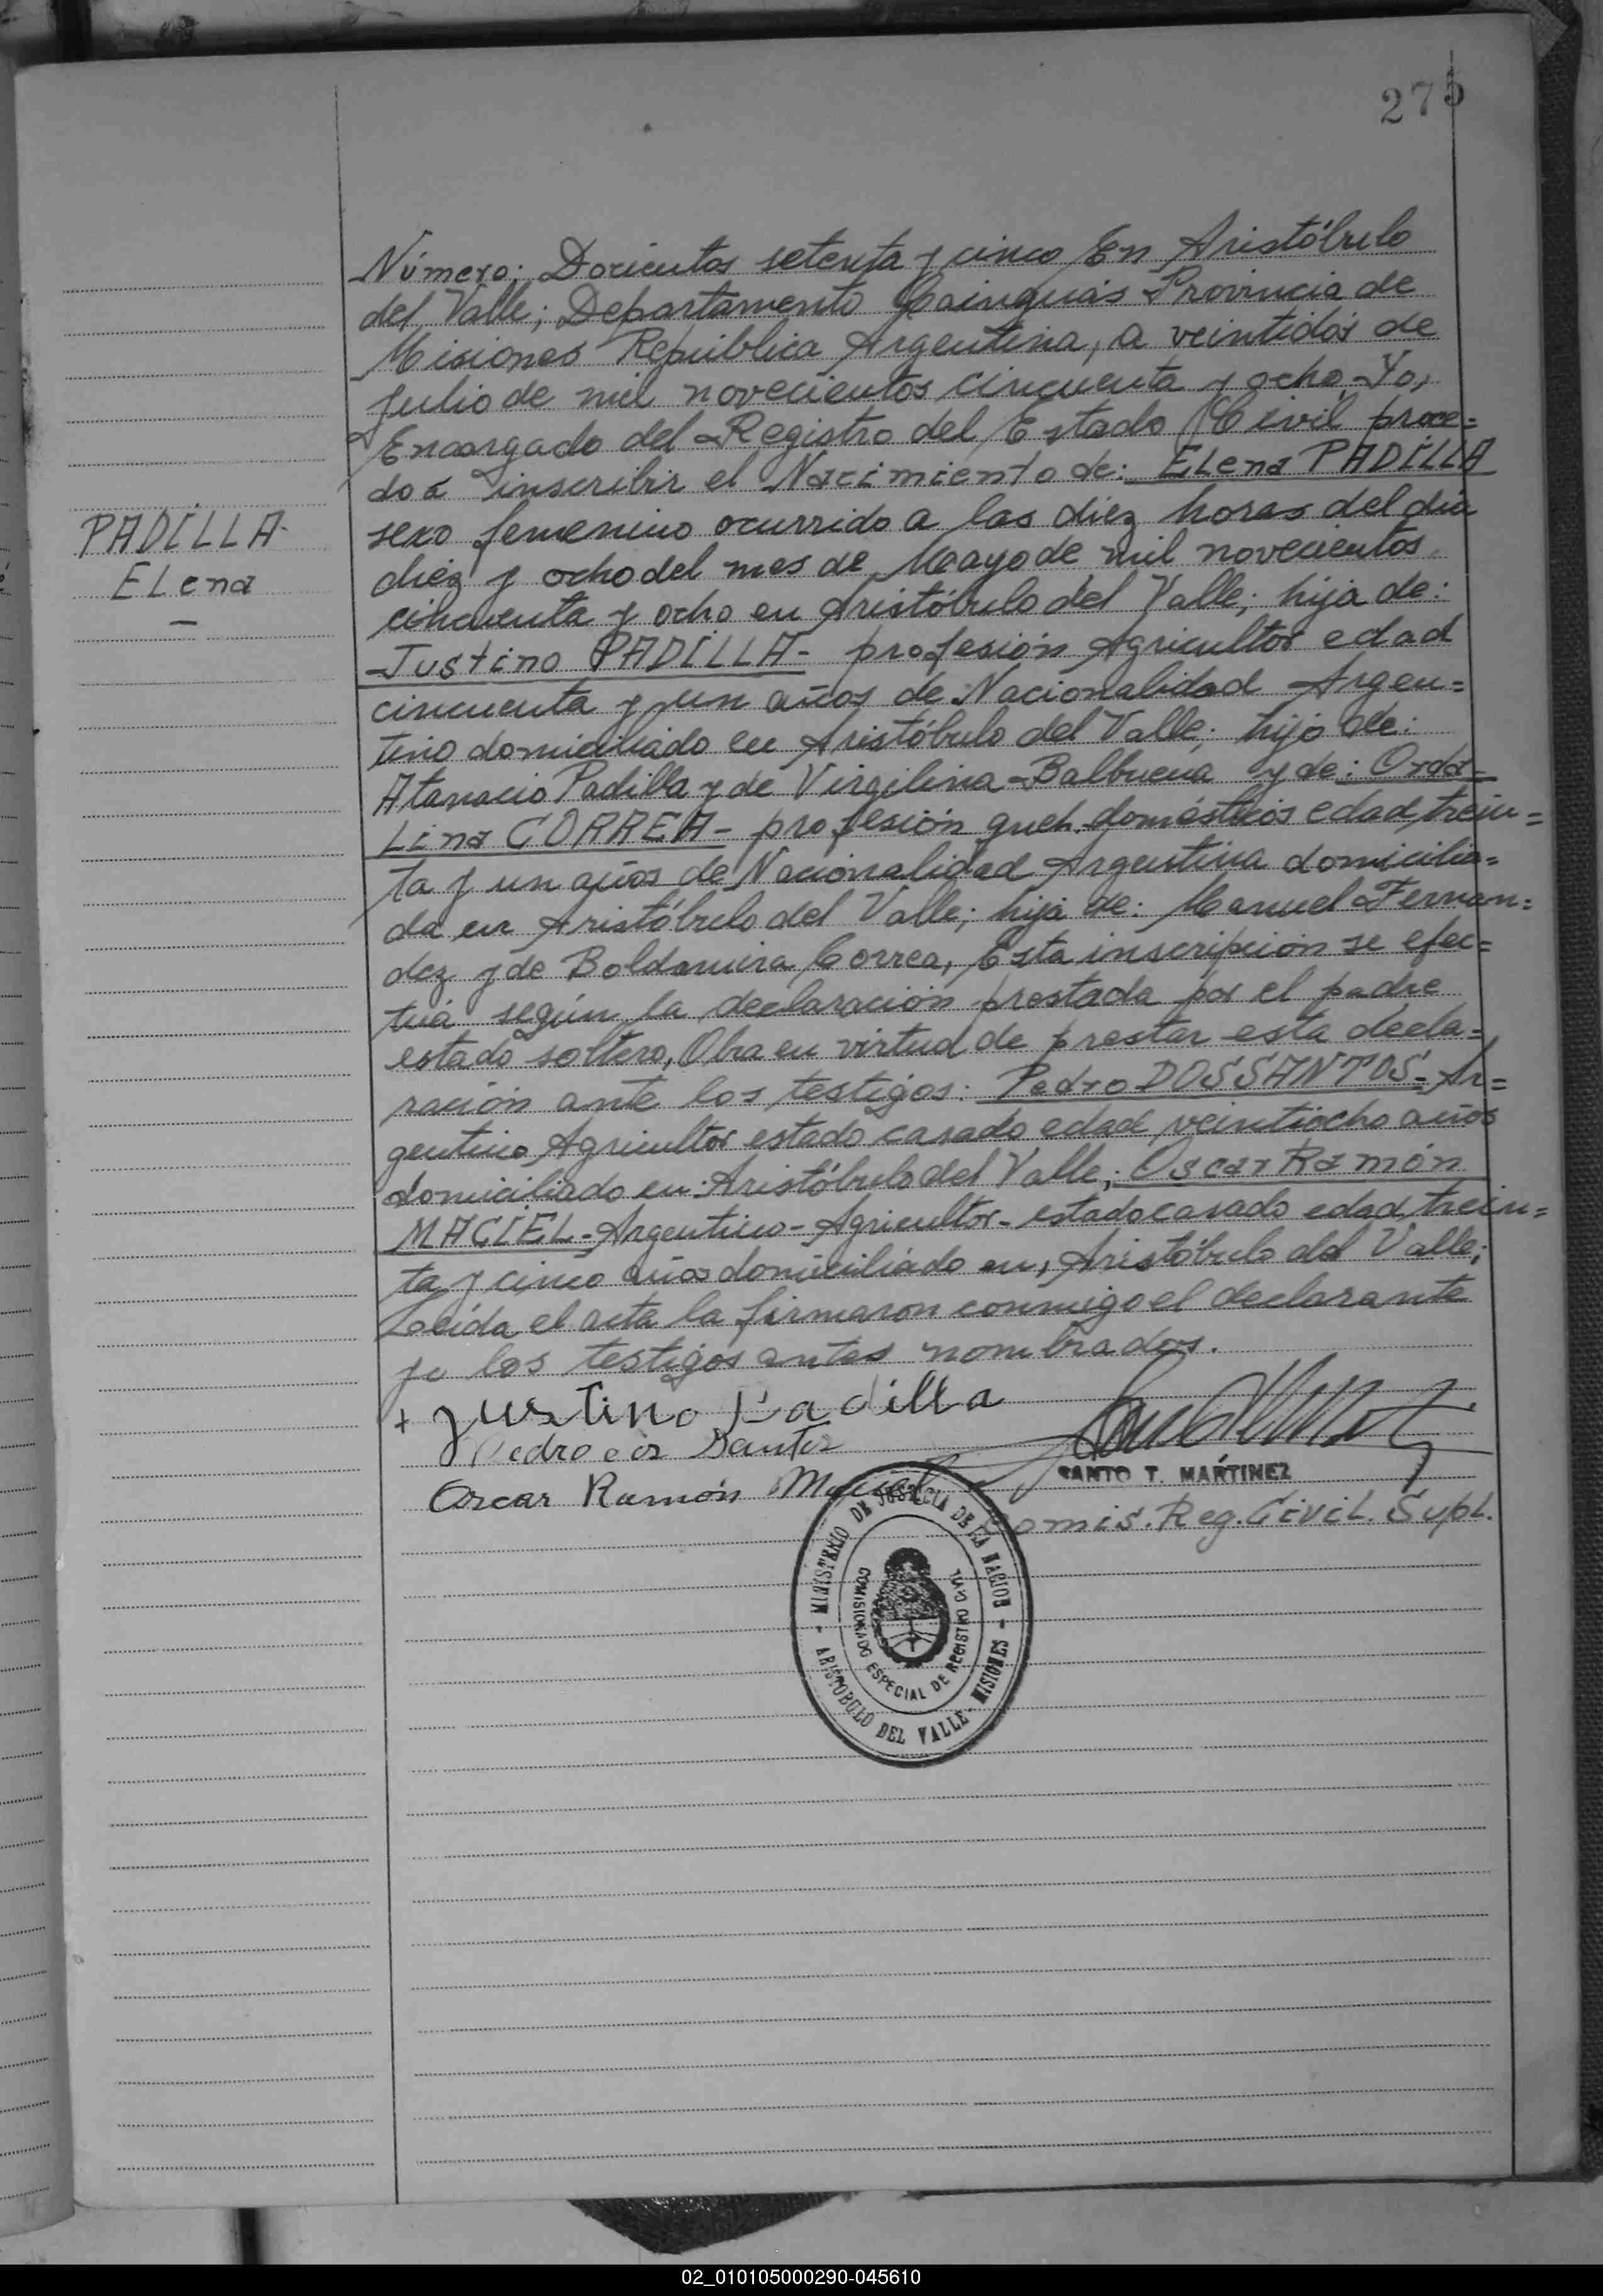 275
Número: Docientos setenta y cinco En Aristóbulo
del Valle; Departamento Cainguás Provincia de
Misiones República Argentina, a veintidós de
Julio de mil novecientos cincuenta y ocho Yo,
Encargado del Registro del Estado Civil proce=
do a inscribir el Nacimiento de: ELena PADILLA
PADILLA-
ELena
sexo femenino ocurrido a las diez horas del día
diez y ocho del mes de Mayo de mil novecientos
cincuenta y ocho en Aristóbulo del Valle; hija de:
Justino PADILLA- profesión Agricultor edad
cincuenta y un años de Nacionalidad Argen=
tino domiciliado en Aristóbulo del Valle; hijo de:
Atanacio Padilla y de Virgilina Balbuena y de: Orda-
Lina CORREA- profesión queh. domésticos edad, trein=
ta y un años de Nacionalidad Argentina domicilia=
da en Aristóbulo del Valle; hija de: Manuel Fernan=
dez y de Boldomira Correa, Esta inscripción se efec=
tuá según la declaración prestada por el padre
estado soltero, Obra en virtud de prestar esta decla=
ración ante los testigos: Pedro DOSSANTOS- Ar=
gentino Agricultor estado casado edad veintiocho años
domiciliado en Aristóbulo del Valle; Oscar Ramón
MACIEL- Argentino- Agricultor- estado casado edad, trein=
ta y cinco años domiciliado en, Aristóbulo del Valle;
Leída el acta la firmaron conmigo el declarante
y los testigos antes nombrados.
+ Justino Padilla
Pedro dos Santos
SANTO T. MARTINEZ
Oscar Ramón Maciel
Comis. Reg. Civil. Supl.
MINISTERIO DE JUSTICIA DE LA NACION
COMISIONADO ESPECIAL DE REGISTRO CIVIL
- ARISTOBULO DEL VALLE - MISIONES -
02_010105000290-045610